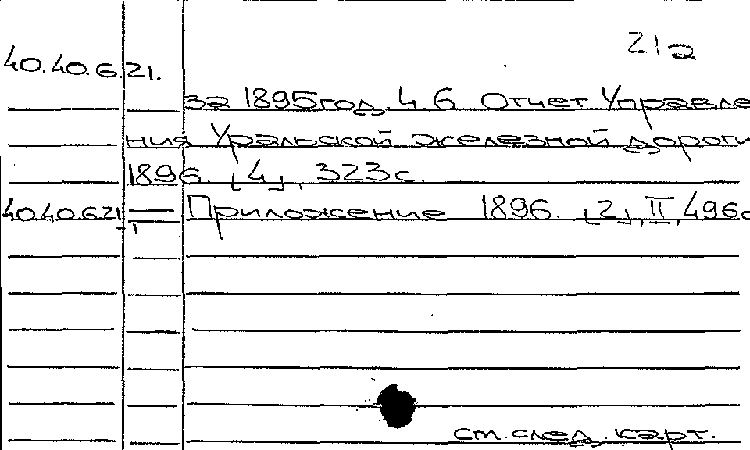 21а
40.40.6.21.
за 1895год. Ч. 6 Отчет Управле
ния Уральской железной дороги
1896. [4], 323с.
40.40.6.21 — Приложение 1896. [2], II, 496с
I
см. след. карт.